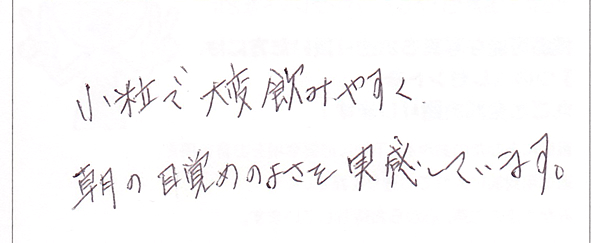 小粒で大変飲みやすく
朝の目覚めのよさを実感しています。